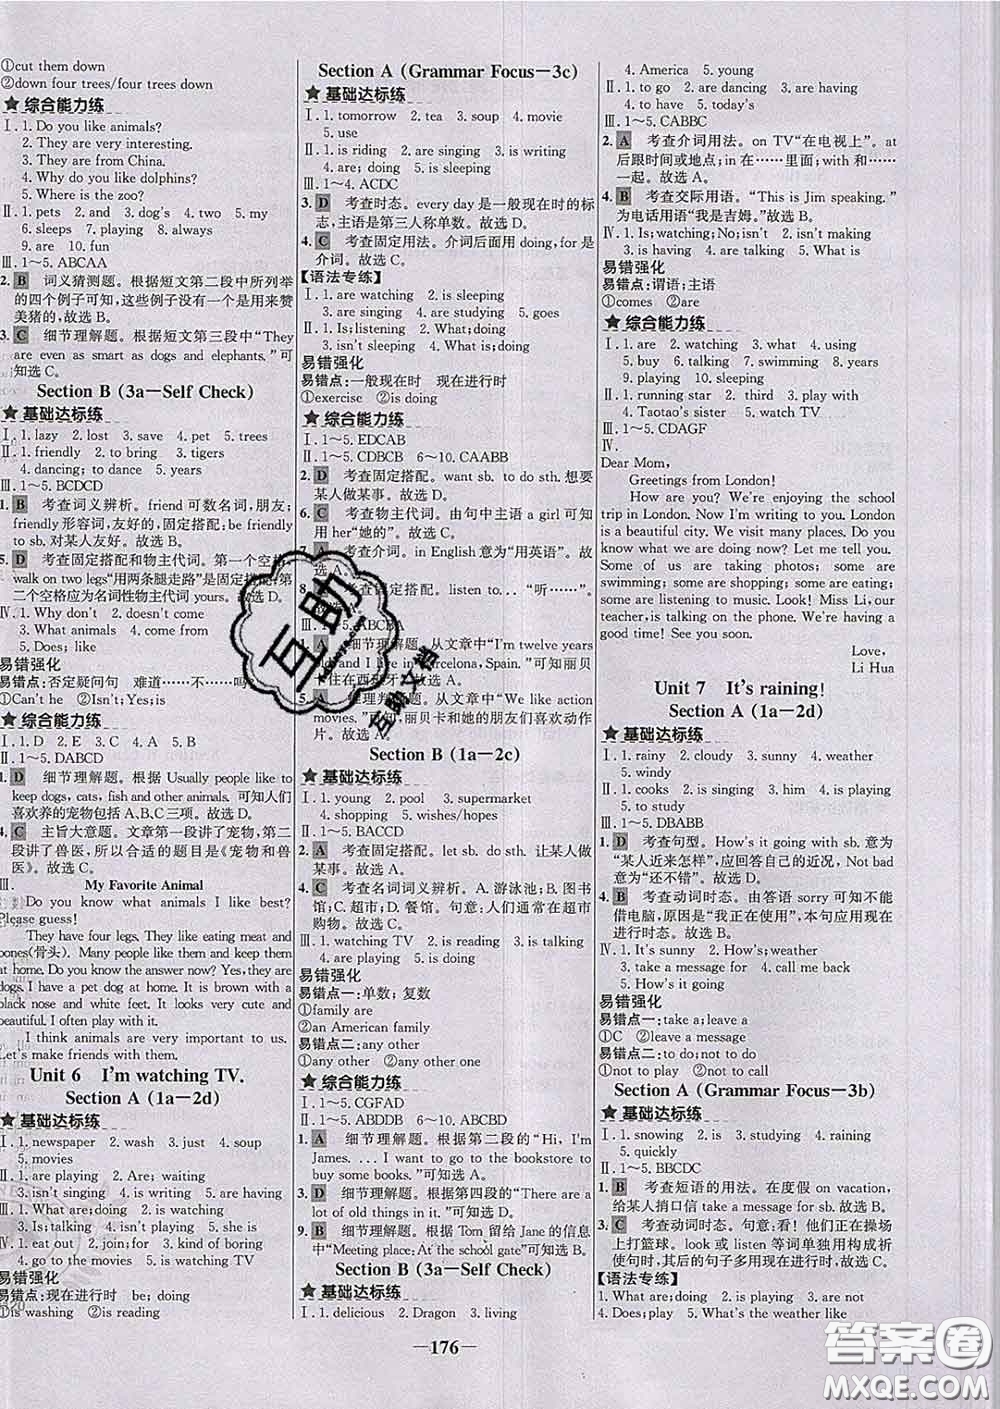 ①cut them down
②down four trees/four trees down
★综合能力练
Ⅰ. 1. Do you like animals?
2. They are very interesting.
3. They are from China.
4. Why do you like dolphins?
5. Where is the zoo?
Ⅱ. 1. pets 2. and 3. dog's 4. two 5. my
6. sleeps 7. playing 8. always
9. are 10. fun
Ⅲ. 1~5. ABCAA
2. B 词义猜测题。根据短文第二段中所列举
的四个例子可知，这些例子没有一个是用来赞
美猪的，故选 B。
3. C 细节理解题。根据短文第三段中“They
are even as smart as dogs and elephants.”可
知选 C。
Section B (3a—Self Check)
★基础达标练
Ⅰ. 1. lazy 2. lost 3. save 4. pet 5. trees
Ⅱ. 1. friendly 2. to bring 3. tigers
4. dancing; to dance 5. years
Ⅲ. 1~5. BCDCD
1. B 考查词义辨析。friend 可数名词，朋友；
friendly 形容词，友好的，固定搭配 be friendly
to sb. 对某人友好。故选 B。
5. D 考查固定搭配和物主代词。第一个空格，
walk on two legs“用两条腿走路”是固定搭配，第
二个空格应为名词性物主代词 yours。故选 D。
Ⅳ. 1. Why don't 2. doesn't come
3. What animals 4. come from
5. Do; does
易错强化
易错点：否定疑问句 难道……不……吗？
①Can't he ②Isn't; Yes; is
★综合能力练
Ⅰ. 1. D 2. E 3. C 4. A 5. B
Ⅱ. 1~5. DABCD
1. D 细节理解题。根据 Usually people like to
keep dogs, cats, fish and other animals. 可知人们
喜欢养的宠物包括 A、B、C 三项。故选 D。
4. C 主旨大意题。文章第一段讲了宠物，第二
段讲了兽医，所以合适的题目是《宠物和兽
医》。故选 C。
Ⅲ. My Favorite Animal
Do you know what animals I like best?
Please guess!
They have four legs. They like eating meat and
bones(骨头). Many people like them and keep them
at home. Do you know the answer now? Yes, they are
dogs. I have a pet dog at home. It is brown with a
black nose and white feet. It looks very cute and
beautiful. I often play with it.
I think animals are very important to us.
Let's make friends with them.
Unit 6 I'm watching TV.
Section A (1a—2d)
★基础达标练
Ⅰ. 1. newspaper 2. wash 3. just 4. soup
5. movies
Ⅱ. 1. are playing 2. Are; waiting
3. isn't singing 4. is playing 5. are having
Ⅲ. 1. What are; doing 2. What is; doing
3. Is; talking 4. isn't playing 5. she is
Ⅳ. 1. eat out 2. join; for 3. kind of boring
4. go to the movies 5. watching TV
易错强化
易错点：现在进行时 be; doing
①is washing ②is reading
Section A (Grammar Focus—3c)
★基础达标练
Ⅰ. 1. tomorrow 2. tea 3. soup 4. movie
5. use
Ⅱ. 1. is riding 2. are singing 3. is writing
4. are; doing 5. is reading
Ⅲ. 1~4. ACDC
3. D 考查时态。every day 是一般现在时的标
志，主语是第三人称单数。故选 D。
4. C 考查固定用法。介词后面用 doing，for 是
介词。故选 C。
【语法专练】
Ⅰ. 1. are watching 2. is sleeping
3. are singing 4. are studying 5. goes
Ⅱ. 1. Is; listening 2. What; doing
3. isn't sleeping 4. What is; doing
易错强化
易错点：一般现在时 现在进行时
①exercise ②is doing
★综合能力练
Ⅰ. 1~5. EDCAB
Ⅱ. 1~5. CDBCB 6~10. CAABB
2. D 考查固定搭配。want sb. to do sth. 想要
某人做某事。故选 D。
6. C 考查物主代词。由句中主语 a girl 可知
用 her“她的”。故选 C。
7. A 考查介词。in English 意为“用英语”。故
选 A。
8. 考查固定搭配。listen to... “听……”。
故选 A。
Ⅲ. 1~5. ABCBA
1. A 细节理解题。从文章中“I'm twelve years
old and I live in Barcelona, Spain.”可知丽贝
卡住在西班牙。故选 A。
5. A 推理判断题。从文章中“We like action
movies.”可知，丽贝卡和她的朋友们喜欢动作
片。故选 A。
Section B (1a—2c)
★基础达标练
Ⅰ. 1. young 2. pool 3. supermarket
4. shopping 5. wishes/hopes
Ⅱ. 1~5. BACCD
2. A 考查固定搭配。let sb. do sth. 让某人做
某事。故选 A。
4. C 考查名词词义辨析。A. 游泳池；B. 图书
馆；C. 超市；D. 餐馆。句意：人们通常在超市
购物。故选 C。
Ⅲ. 1. watching TV 2. is reading 3. is talking
4. are playing 5. is doing
易错强化
易错点一：单数；复数
①family are
②an American family
易错点二：any other
①any other ②any other
★综合能力练
Ⅰ. 1~5. CGFAD
Ⅱ. 1~5. ABDDB 6~10. ABCBD
1. A 细节理解题。根据第二段的“Hi, I'm
James. ... I want to go to the bookstore to
buy some books.”可知选 A。
3. D 细节理解题。根据第四段的“There are a
lot of old things in it.”可知选 D。
9. B 细节理解题。根据 Tom 留给 Jane 的信息
中“Meeting place: At the school gate”可知选 B。
Section B (3a—Self Check)
★基础达标练
Ⅰ. 1. delicious 2. Dragon 3. living
4. America 5. young
Ⅱ. 1. to go 2. are dancing 3. are having
4. to have 5. today's
Ⅲ. 1~5. CABBC
2. A 考查介词用法。on TV“在电视上”。at
后跟时间或地点；in 在……里面；with 和……
一起。故选 A。
4. B 考查交际用语。“This is Jim speaking.”
为电话用语“我是吉姆。”故选 B。
Ⅳ. 1. Is; watching; No; isn't 2. isn't making
3. is having 4. are talking 5. What is
易错强化
易错点：谓语；主语
①comes ②are
★综合能力练
Ⅰ. 1. are 2. watching 3. what 4. using
5. buy 6. talking 7. swimming 8. years
9. playing 10. sleeping
Ⅱ. 1. running star 2. third 3. play with
4. Taotao's sister 5. watch TV
Ⅲ. 1~5. CDAGF
Ⅳ.
Dear Mom,
Greetings from London!
How are you? We're enjoying the school
trip in London. Now I'm writing to you. London
is a beautiful city. We visit many places. Do you
know what we are doing now? Let me tell you.
Some of us are taking photos; some are
swimming; some are shopping; some are eating;
some are listening to music. Look! Miss Li, our
teacher, is talking on the phone. We are having a
good time!
Love,
Li Hua
Unit 7 It's raining!
Section A (1a—2d)
★基础达标练
Ⅰ. 1. rainy 2. cloudy 3. sunny 4. weather
5. windy
Ⅱ. 1. cooks 2. is singing 3. him 4. is playing
5. to study
Ⅲ. 1~5. DBABB
1. D 考查句型。How's it going with sb. 意为
“某人近来怎样”，应回答自己的近况，Not bad
意为“还不错”。故选 D。
4. B 考查动词时态。由答语 sorry 可知不能
借电脑，原因是“我正在使用”，本句应用现在
进行时态。故选 B。
Ⅳ. 1. It's sunny 2. How's; weather
3. take a message for 4. talking about
5. How's it going
易错强化
易错点一：take a; leave a
①C ②leave a message
易错点二：to do; not to do
①not to play ②not to do
Section A (Grammar Focus—3b)
★基础达标练
Ⅰ. 1. snowing 2. is 3. studying 4. raining
5. quickly
Ⅱ. 1~5. BBCDC
1. B 考查短语的用法。在度假 on vacation，
给某人捎口信 take a message for sb. 故选 B。
3. C 考查动词时态。句意：看！他们正在操场
上打篮球。look 或 listen 等词单独构成祈使
句时，后面的句子多用现在进行时。故选 C。
【语法专练】
1. What are; doing 2. is playing 3. are not
4. Does; play 5. What's the weather like
—176—
互助
互助文档
答案圈
MXQE.COM